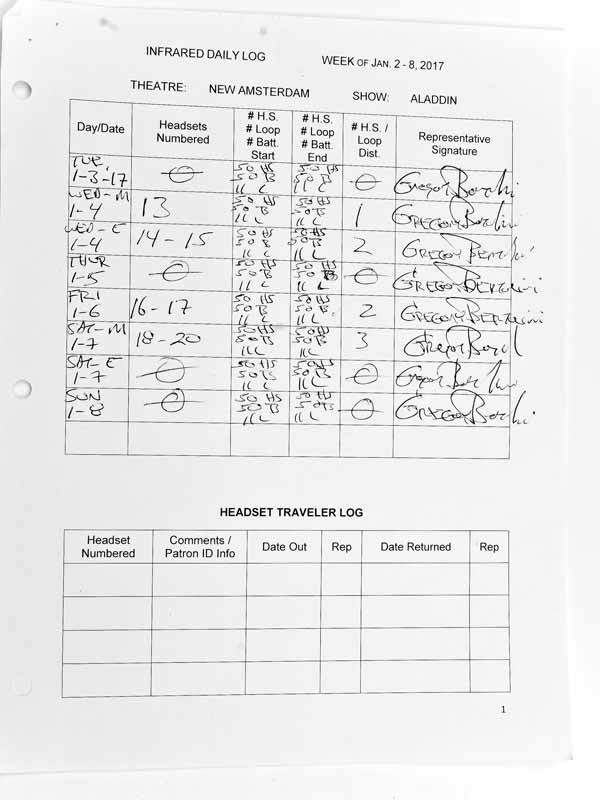 INFRARED DAILY LOG WEEK OF JAN. 2 - 8, 2017
THEATRE: NEW AMSTERDAM SHOW: ALADDIN
Day/Date Headsets Numbered # H.S. # Loop # Batt. Start # H.S. # Loop # Batt. End # H.S. / Loop Dist. Representative Signature
TUE 1-3-17 0 50 HS 50 B 11 L 50 HS 50 B 11 L 0 Gregory
WED-M 1-4 13 50 HS 50 B 11 L 50 HS 50 B 11 L 1 GREGORY
WED-E 1-4 14-15 50 HS 50 B 11 L 50 HS 50 B 11 L 2 GREGORY
THUR 1-5 0 50 HS 50 B 11 L 50 HS 50 B 11 L 0 GREGORY
FRI 1-6 16-17 50 HS 50 B 11 L 50 HS 50 B 11 L 2 GREGORY
SAT-M 1-7 18-20 50 HS 50 B 11 L 50 HS 50 B 11 L 3 Gregory
SAT-E 1-7 0 50 HS 50 BS 11 L 50 HS 50 B 11 L 0 Gregory
SUN 1-8 0 50 HS 50 B 11 L 50 HS 50 B 11 L 0 GREGORY
HEADSET TRAVELER LOG
Headset Numbered Comments / Patron ID Info Date Out Rep Date Returned Rep
1